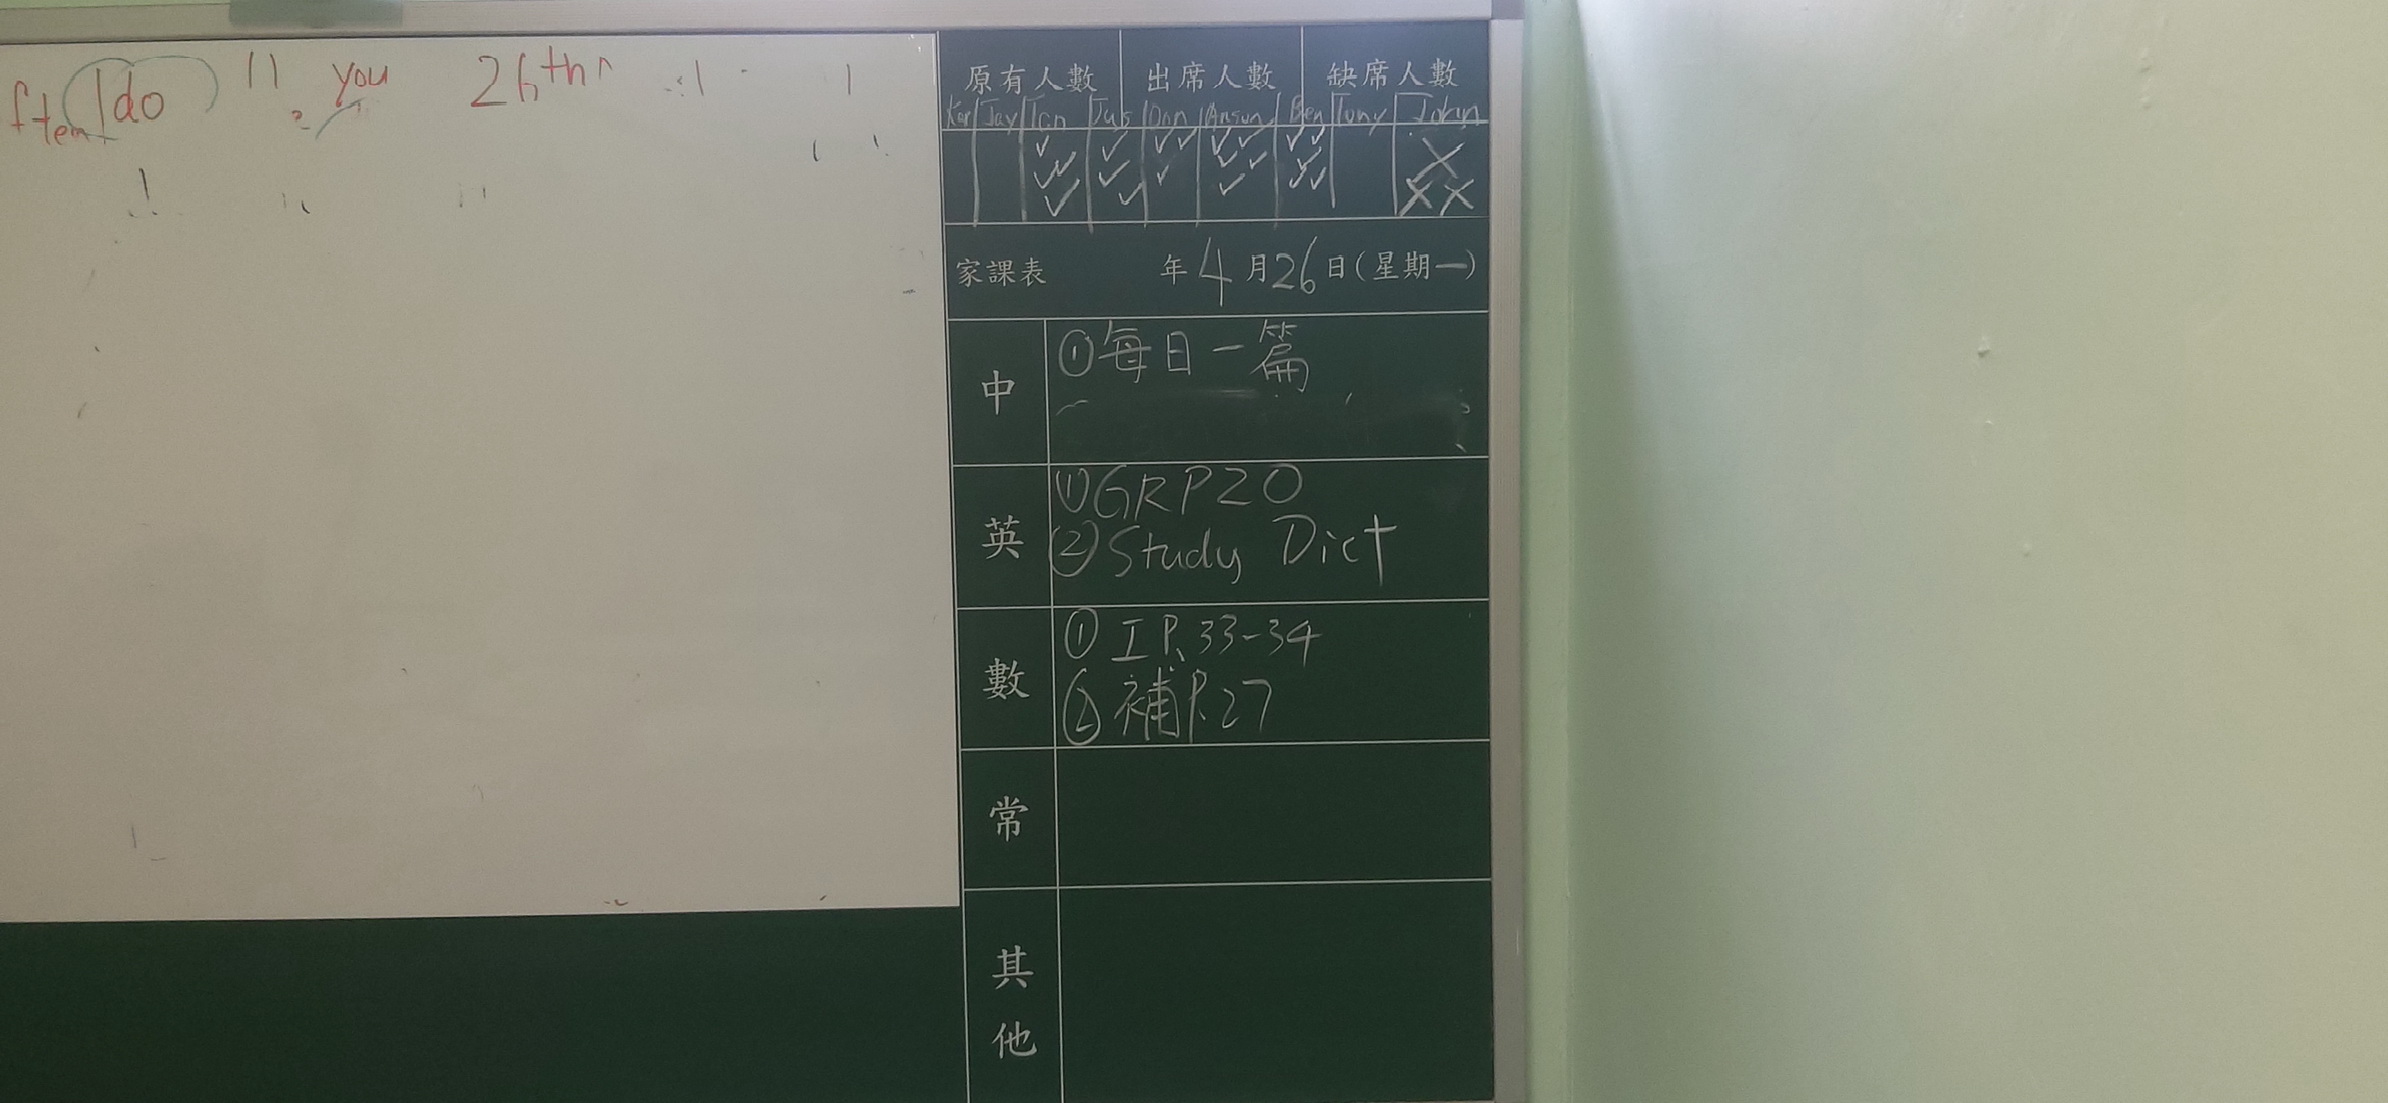 do you 26th
原有人數 出席人數 缺席人數
Jay Ian Jus Anson Ben Tony John
家課表 年4月26日(星期一)
中 ①每日一篇
英 ①GRP20
②Study Dict
數 ①I P.33-34
②補P.27
常
其他